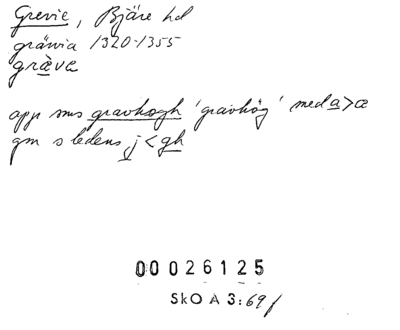 Grevie, Bjäre hd
gränia 1320-1355
græva
app sms gravhøgh 'gravhög' med a>æ
gm s ledens j<gh
00026125
SkO A 3:69f